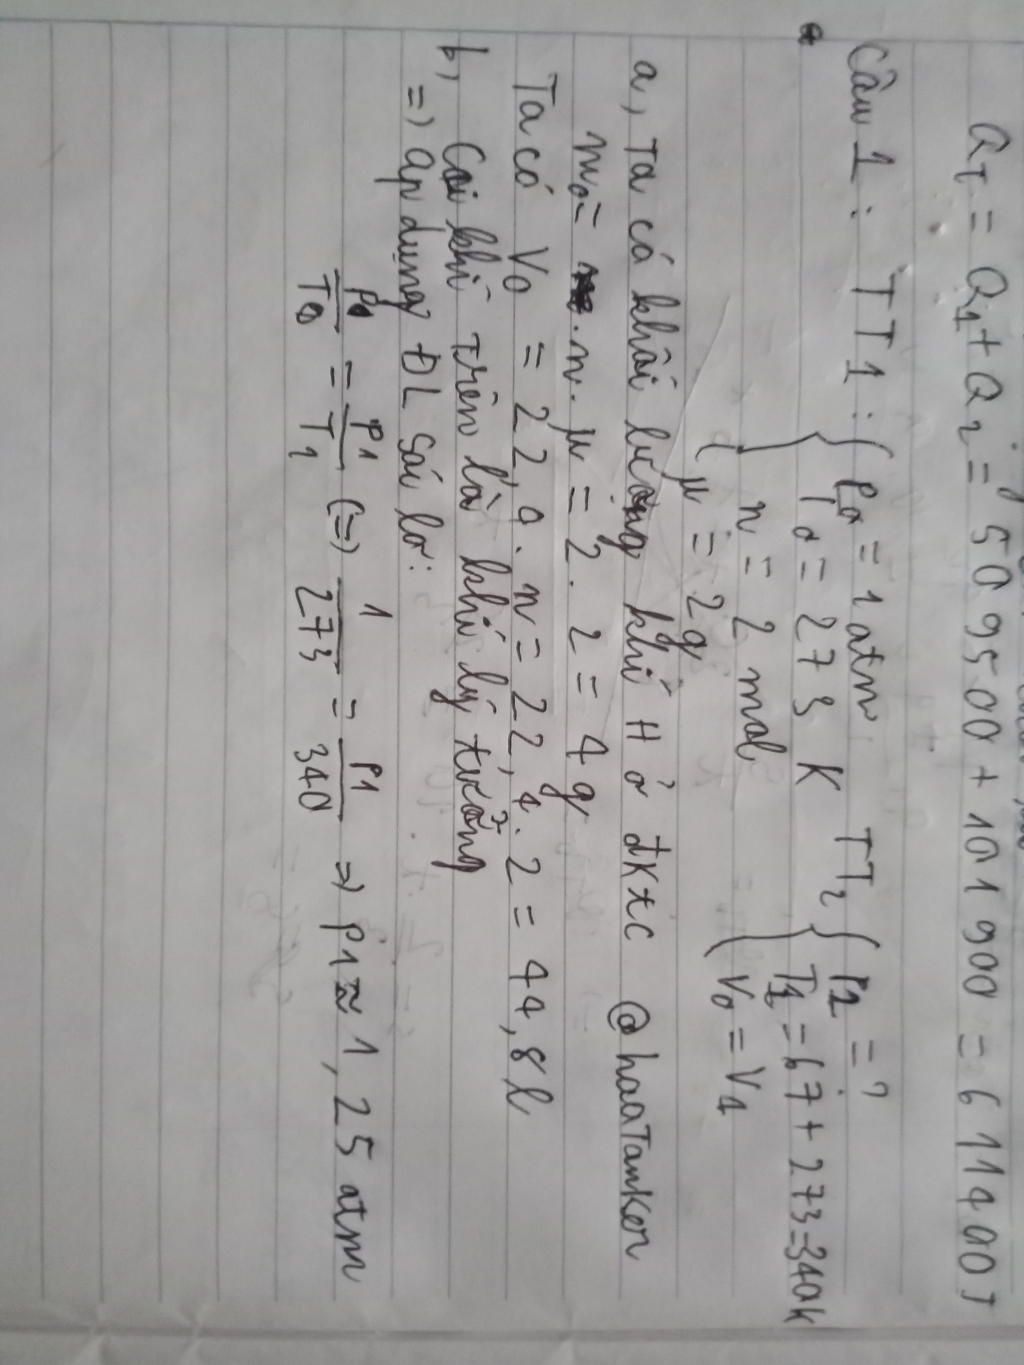 Q_T = Q_1 + Q_2 = 5095500 + 101900 = 611400J
Câu 1: TT1: { P_0 = 1 atm TT_2 { P_1 = ?
T_0 = 273 K T_1 = 67 + 273 = 340K
n = 2 mol V_0 = V_1
μ = 2g
a, Ta có khối lượng khí H ở đktc @haaTanker
m_0 = n.μ = 2.2 = 4g
Ta có V_0 = 22,4.n = 22,4.2 = 44,8l
b, Coi khí trên là khí lý tưởng
=> áp dụng ĐL Sác lơ:
P_0/T_0 = P_1/T_1 (=) 1/273 = P_1/340 => P_1 ≈ 1,25 atm